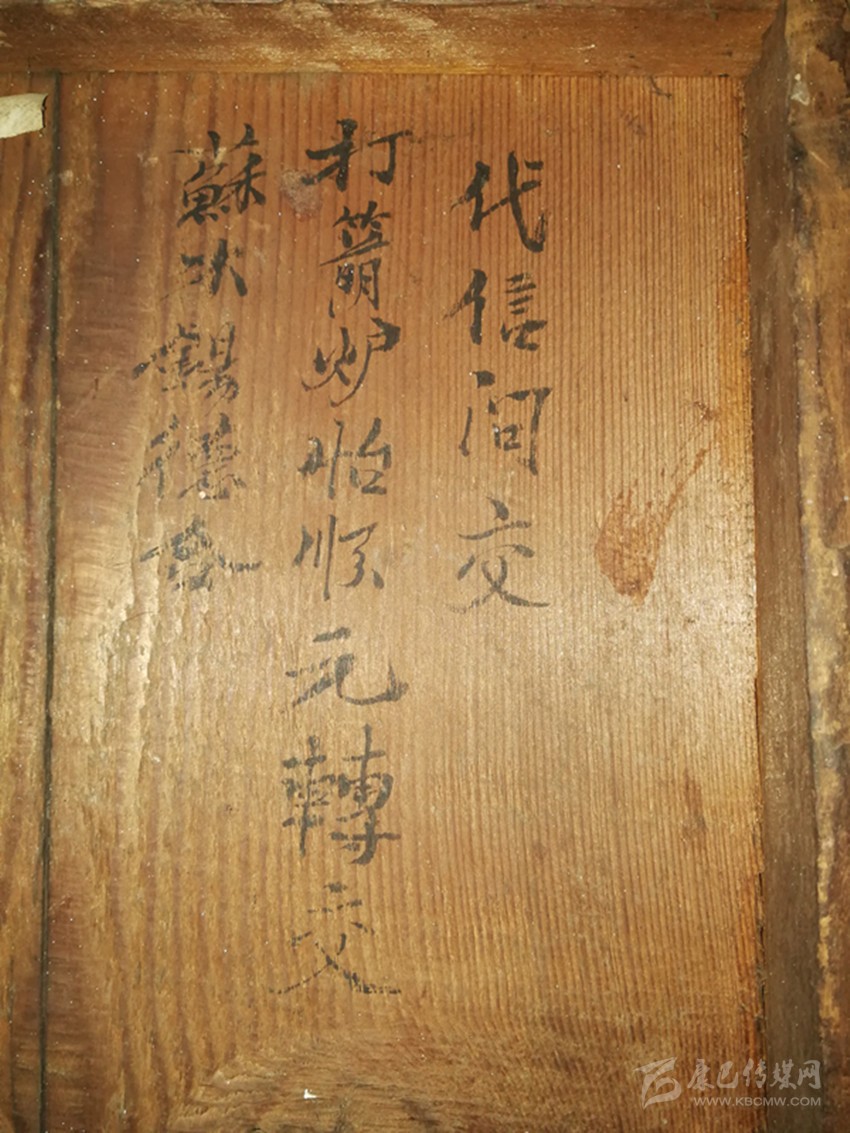 代信问交
打箭炉怡顺元轉交
蘇次錫德
康巴传媒网
WWW.KBCMW.COM